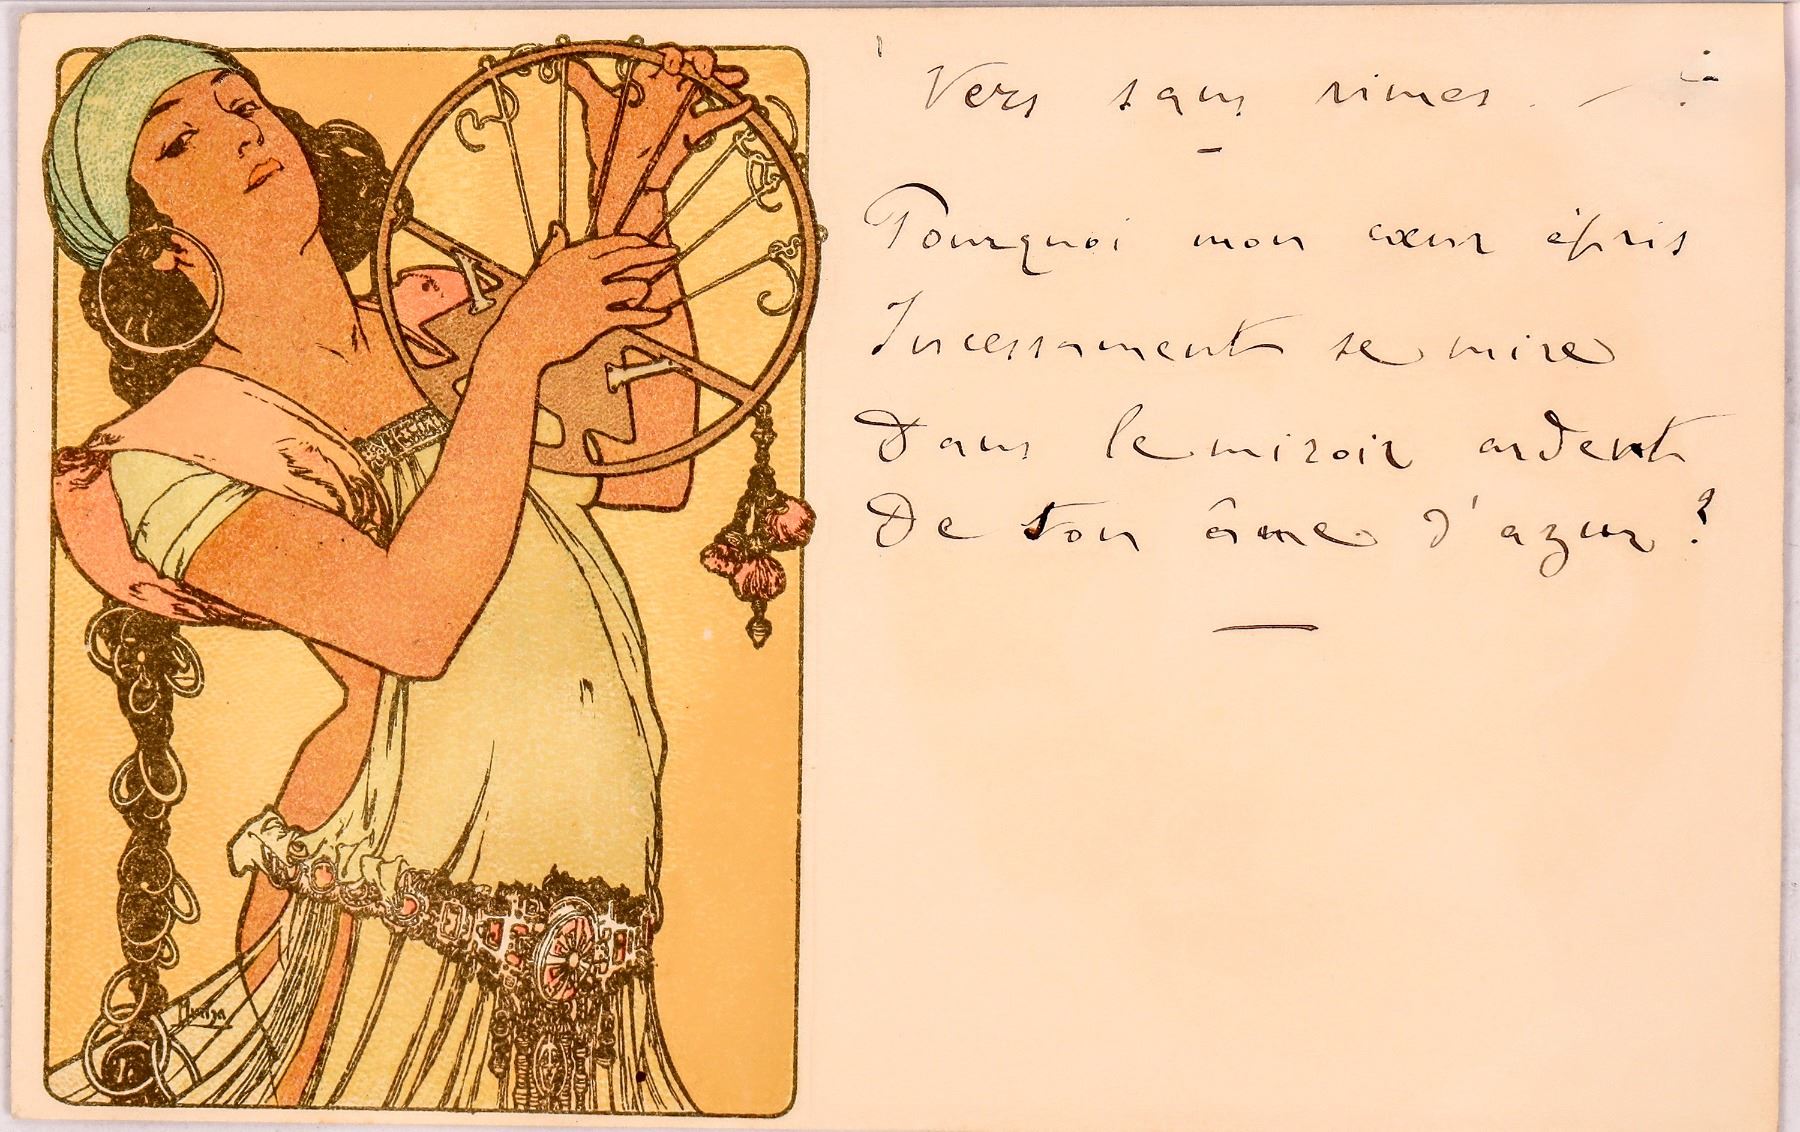 Vers sans rimes. —
Pourquoi mon cœur épris
Incessament se mire
Dans le miroir ardent
De ton âme d'azur ?
Mucha